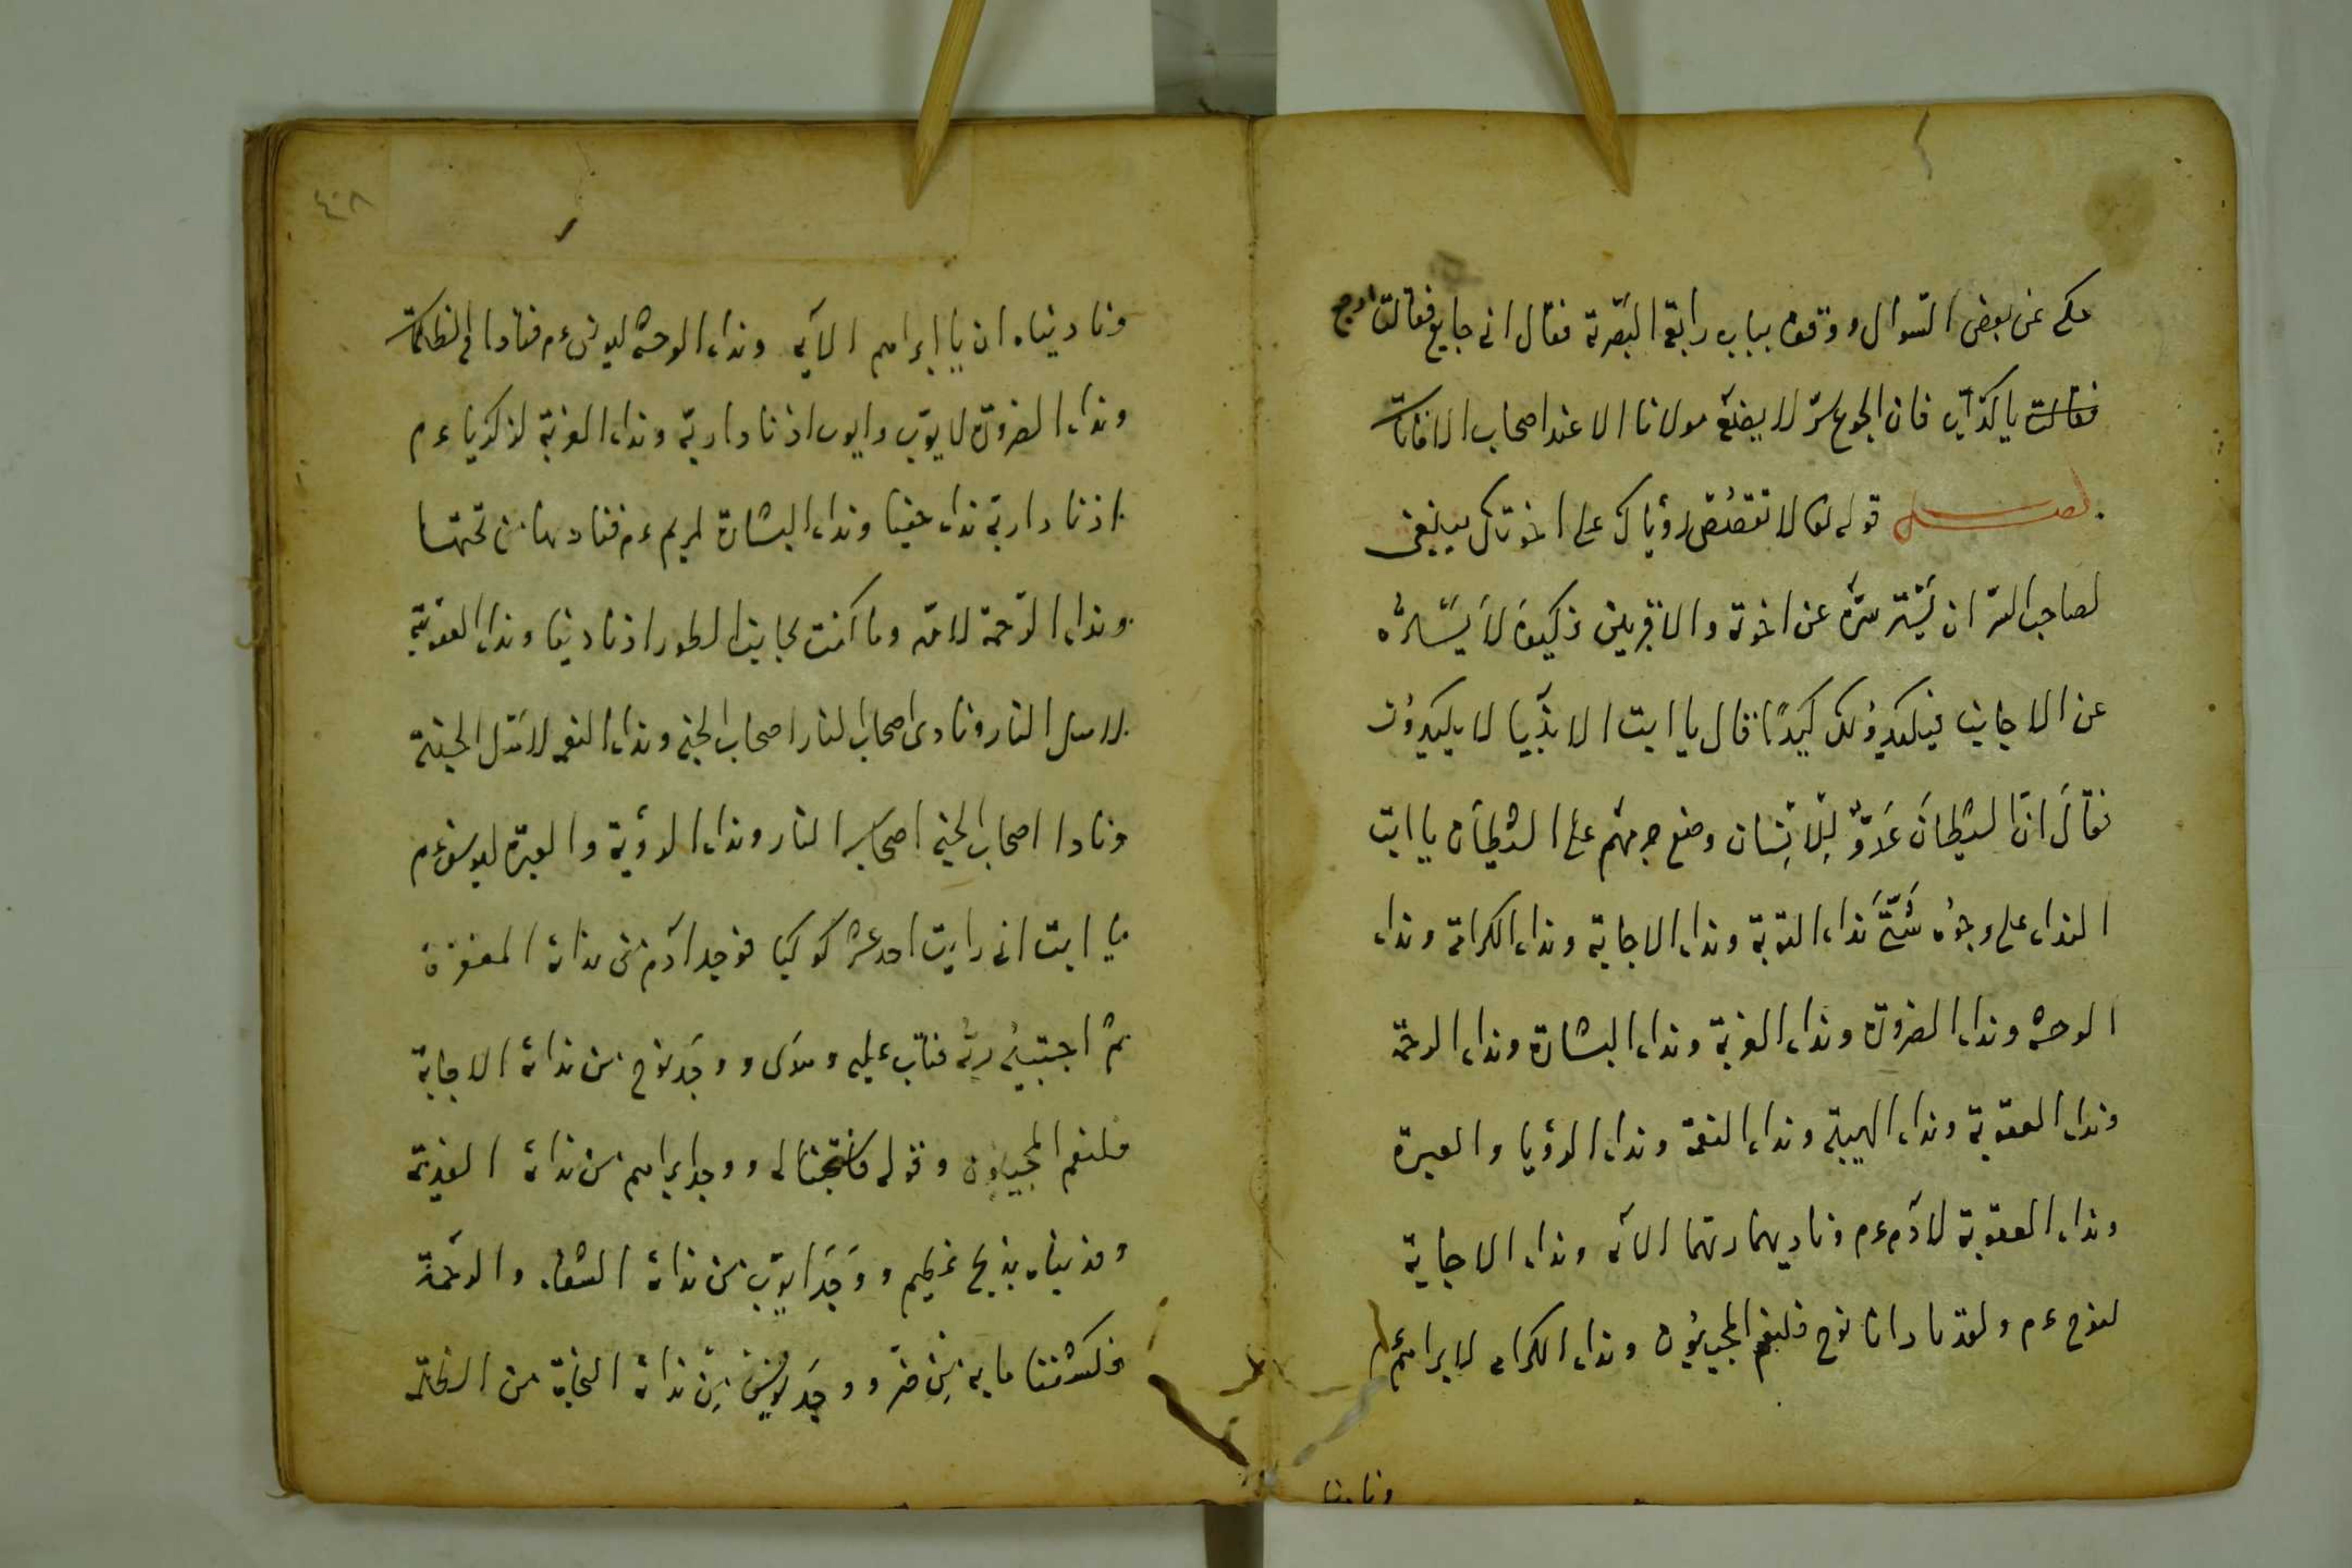 حكى عن بعض السوال ووقف بباب رابعة البصرية فقال انى جايع فقالت ارجع
فقالت يا كذاب فان الجوع سر لا يضعه مولانا الا عند اصحاب الافاق
فصل قوله تعالى لا تقصص رؤياك على اخوتك ينبغى
لصاحب السر ان يستر سره عن اخوته والاقربين فكيف لا يستره
عن الاجانب فيكيدوا لك كيدا قال يا ابت الانبيا لا يكيدون
فقال ان الشيطان عدو للانسان وضع جرمهم على الشيطان يا ابت
النداء على وجوه شتى نداء التوبة ونداء الاجابة ونداء الكرامة ونداء
الوحشة ونداء الضرورة ونداء الغربة ونداء البشارة ونداء الرحمة
ونداء العقوبة ونداء الهيبة ونداء النعمة ونداء الرؤيا والعبرة
ونداء العقوبة لآدم ءم وناديهما ربهما الآيه ونداء الاجابة
لنوح ءم ولقد نادانا نوح فلنعم المجيبون ونداء الكرامه لابراهيم ءم
ونادينا
٤٠٨
وناديناه ان يا ابراهيم الآيه ونداء الوحشه ليونس ءم فنادا فى الظلمات
ونداء الضرورة لايوب وايوب اذ نادا ربه ونداء الغربة لزكريا ءم
اذ نادا ربه نداء خفيا ونداء البشارة لمريم ءم فناديها من تحتها
ونداء الرحمة لامته وما كنت بجانب الطور اذ نادينا ونداء العقوبة
لاهل النار ونادى اصحاب النار اصحاب الجنه ونداء النعمه لاهل الجنة
ونادا اصحاب الجنه اصحاب النار ونداء الرؤية والعبرة ليوسف ءم
يا ابت انى رايت احد عشر كوكبا فوجد آدم من ندائه المغفرة
ثم اجتبيه ربه فتاب عليه وهدى ووجد نوح من ندائه الاجابة
فلنعم المجيبون وقوله فاستجبنا له ووجد ابراهيم من ندائه الفدية
وفديناه بذبح عظيم ووجد ايوب من ندائه الشفاء والرحمة
فكشفنا ما به من ضر ووجد يونس من ندائه النجاة من الظلمة